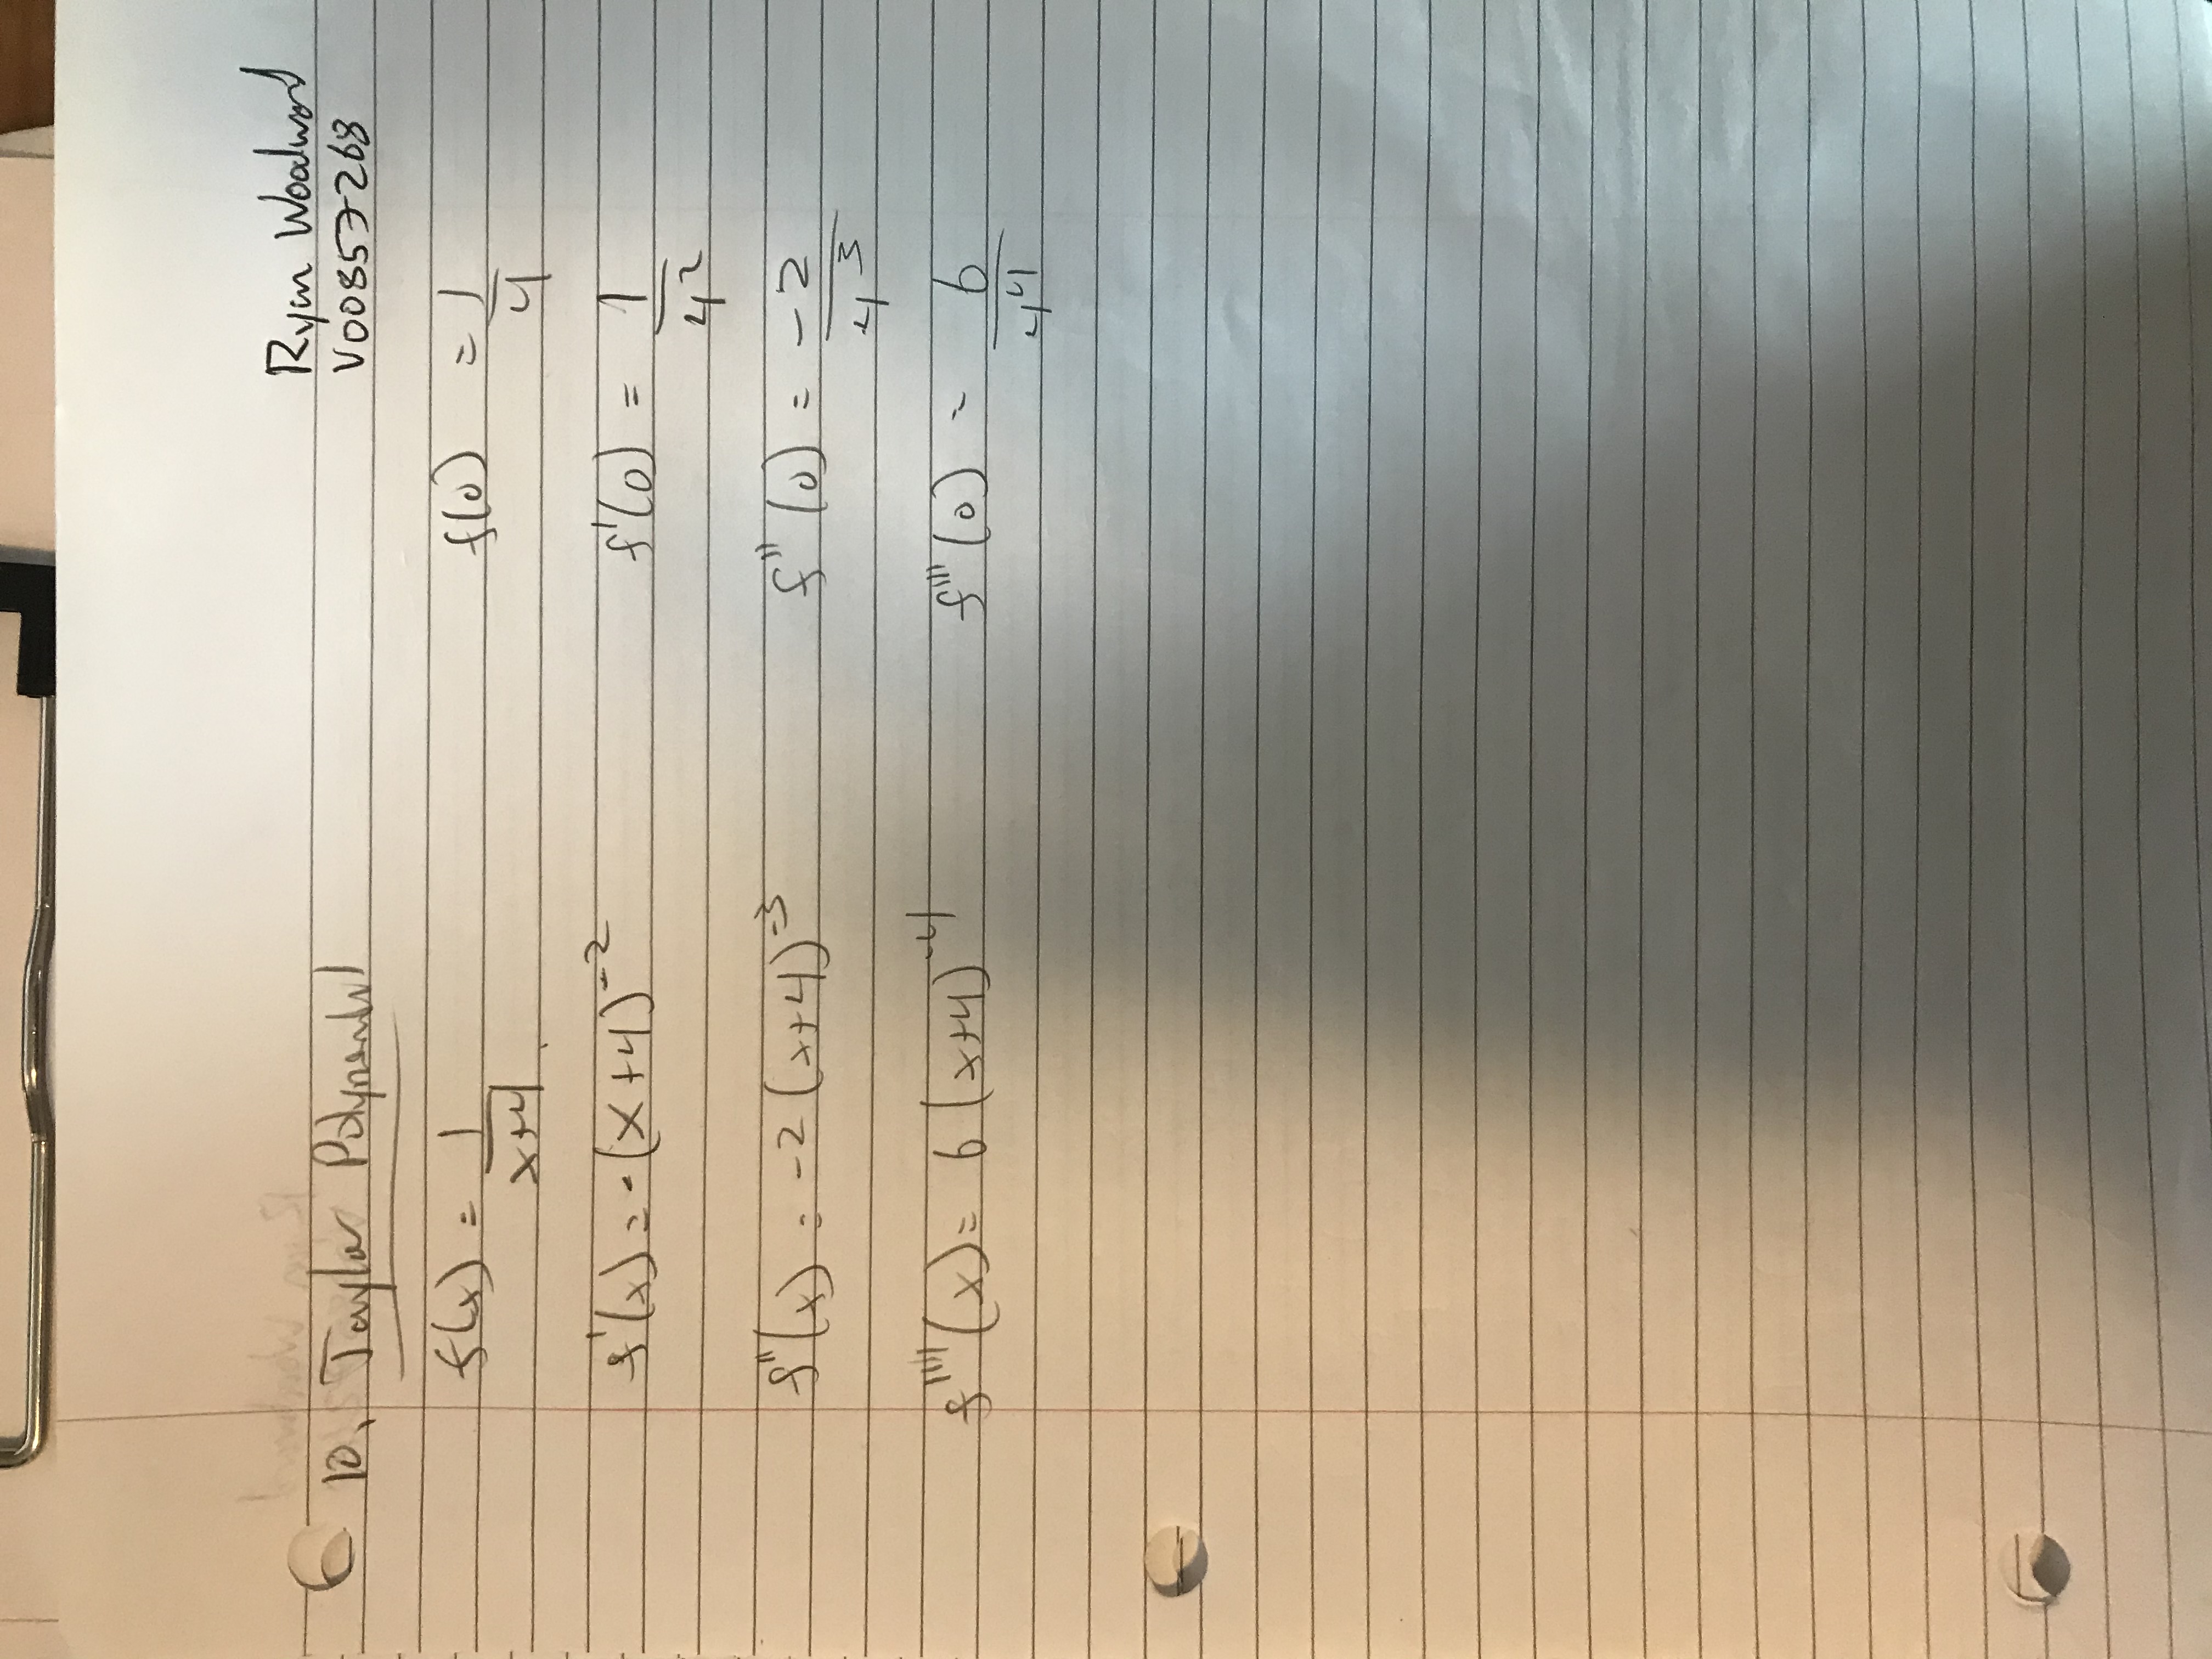 Ryan Woodward
V00857268
10. Taylor Polynomial
f(x) = 1/(x+4)    f(0) = 1/4
f'(x) = -(x+4)^-2    f'(0) = 1/4^2
f''(x) = -2(x+4)^-3    f''(0) = -2/4^3
f''''(x) = 6(x+4)^-4    f'''(0) = 6/4^4